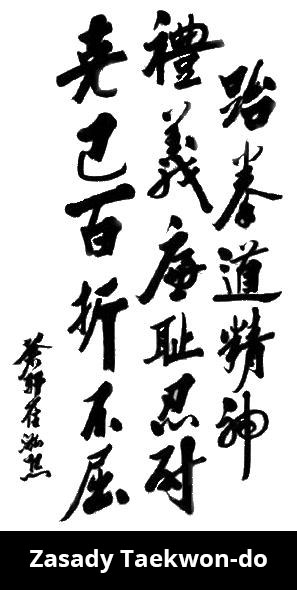 跆拳道精神
禮義廉耻忍耐
克己百折不屈
蒼軒崔泓熙
Zasady Taekwon-do